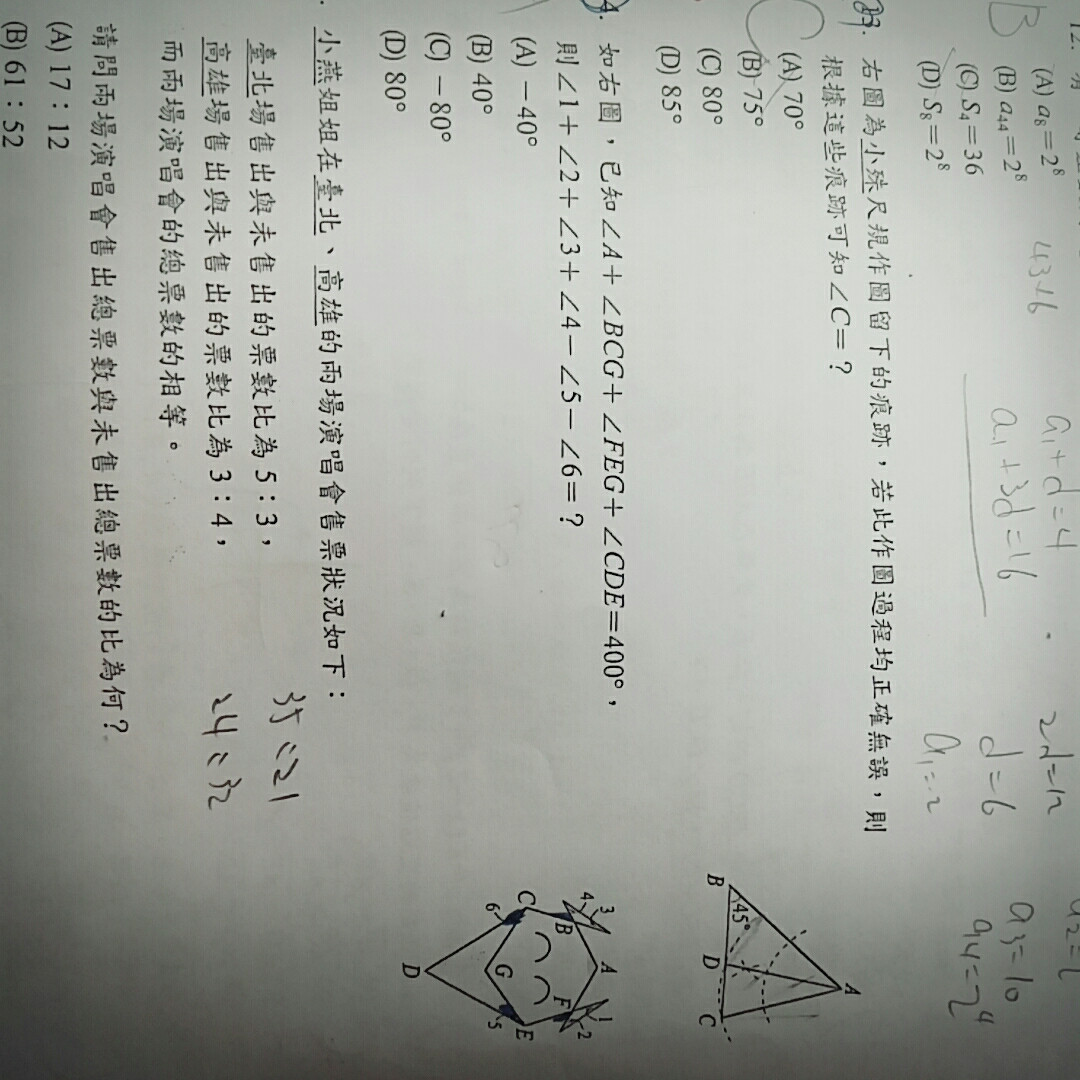 12.
(A) a₈=2⁸
(B) a₄₄=2⁸
(C) S₄=36
(D) S₈=2⁸
B
43×6
a₁+d=4
a₁+3d=16
2d=12
d=6
a₁=-2
a₃=10
a₄=2⁴
右圖為小殊尺規作圖留下的痕跡，若此作圖過程均正確無誤，則
根據這些痕跡可知∠C=？
(A) 70°
(B) 75°
(C) 80°
(D) 85°
C
A
B
45°
D
C
4.
如右圖，已知∠A+∠BCG+∠FEG+∠CDE=400°，
則∠1+∠2+∠3+∠4-∠5-∠6=？
(A) -40°
(B) 40°
(C) -80°
(D) 80°
A
3
4
B
C
6
G
D
1
2
F
E
5
小燕姐姐在臺北、高雄的兩場演唱會售票狀況如下：
臺北場售出與未售出的票數比為 5：3，
高雄場售出與未售出的票數比為 3：4，
而兩場演唱會的總票數的相等。
35：21
24：32
請問兩場演唱會售出總票數與未售出總票數的比為何？
(A) 17：12
(B) 61：52